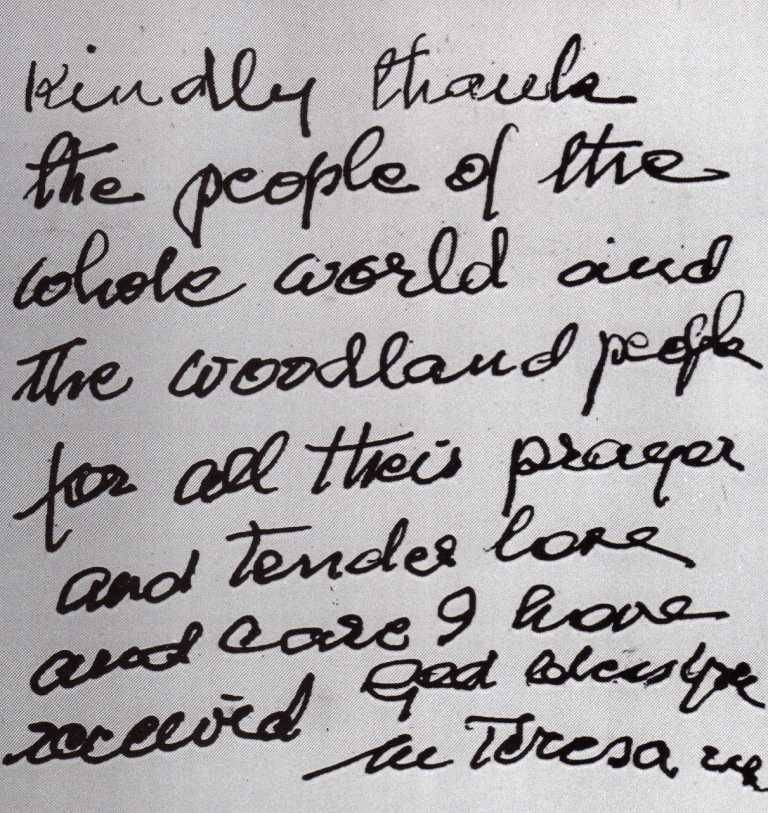 Kindly thank
the people of the
whole world and
the woodland people
for all their prayer
and tender love
and care I have
received God bless you
M Teresa mc